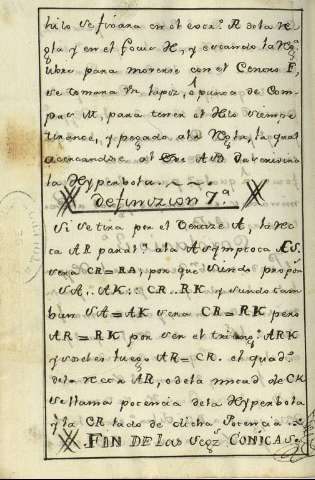 hilo se fixara en el extr.º R de la Re
gla y en el focus H, y estando la Rg.ª
libre para moverse con el Centro F,
se tomara Vn lapiz, ó punta de Com
pas M, para tener el Hilo siempre
tirante, y pegado a la Regla, la qual
acercandose al Exe AB descrivira
la Hyperbola
definizion 7.ª
Si se tira por el Vertize A, la Rec
ta AR paral.ª a la Asymptota CS,
sera CR=RA; por que siendo propor.n
SA..AK:: CR..RK y siendo tam
bien SA=AK sera CR=RK pero
AR=RK por ser el triang.º ARK
luego AR=CR. el quad.º
de la recta AR, o de la mitad de CK
se llama potencia de la Hyperbola
y la CR lado de dicha Potencia
FIN DE LAS CONICAS